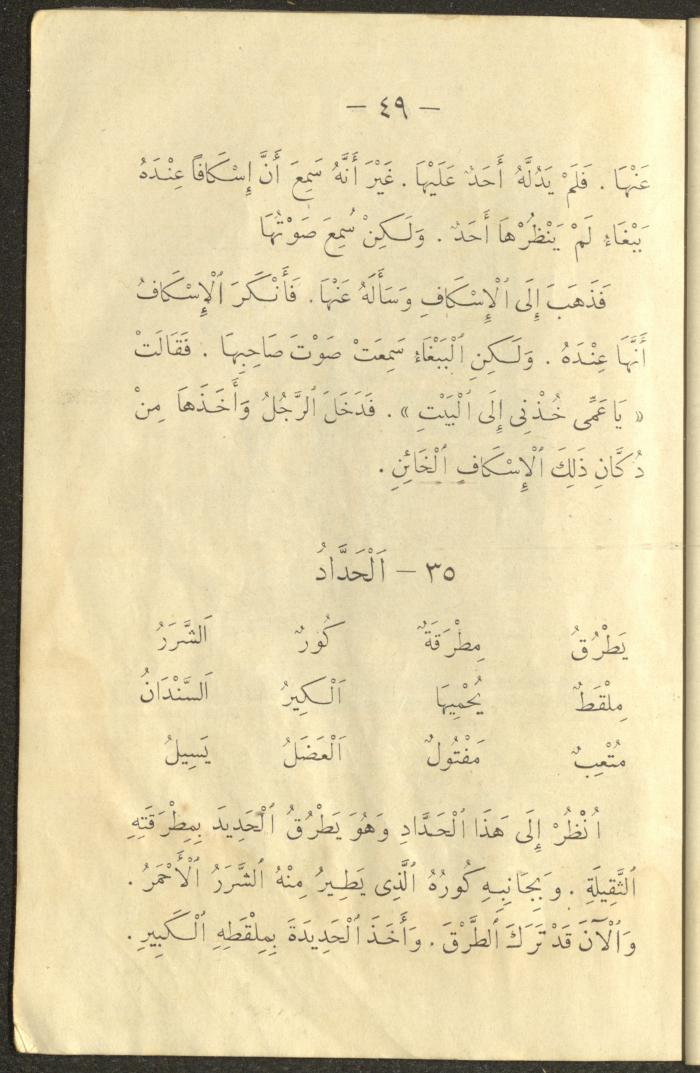 — ٤٩ —
عَنْهَا . فَلَمْ يَدُلَّهُ أَحَدٌ عَلَيْهَا . غَيْرَ أَنَّهُ سَمِعَ أَنَّ إِسْكَافًا عِنْدَهُ
بَبْغَاءُ لَمْ يَنْظُرْهَا أَحَدٌ . وَلَـكِنْ سُمِعَ صَوْتُهَا
فَذَهَبَ إِلَى ٱلْإِسْكَافِ وَسَأَلَهُ عَنْهَا . فَأَنْكَرَ ٱلْإِسْكَافُ
أَنَّهَا عِنْدَهُ . وَلَـكِنِ ٱلْبَبْغَاءُ سَمِعَتْ صَوْتَ صَاحِبِهَا . فَقَالَتْ
« يَا عَمِّى خُذْنِى إِلَى ٱلْبَيْتِ » . فَدَخَلَ ٱلرَّجُلُ وَأَخَذَهَا مِنْ
دُكَّانِ ذَلِكَ ٱلْإِسْكَافِ ٱلْخَائِنِ .
٣٥ — اَلْحَدَّادُ
يَطْرُقُ مِطْرَقَةٌ كُورٌ اَلشَّرَرُ
مِلْقَطٌ يُحْمِيهَا اَلْـكِيرُ اَلسَّنْدَانُ
مُتْعِبٌ مَفْتُولٌ اَلْعَضَلُ يَسِيلُ
اُنْظُرْ إِلَى هَذَا ٱلْحَدَّادِ وَهُوَ يَطْرُقُ ٱلْحَدِيدَ بِمِطْرَقَتِهِ
ٱلثَّقِيلَةِ . وَبِجَانِبِهِ كُورُهُ ٱلَّذِى يَطِيرُ مِنْهُ ٱلشَّرَرُ ٱلْأَحْمَرُ .
وَٱلْآنَ قَدْ تَرَكَ ٱلطَّرْقَ . وَأَخَذَ ٱلْحَدِيدَةَ بِمِلْقَطِهِ ٱلْـكَبِيرِ .